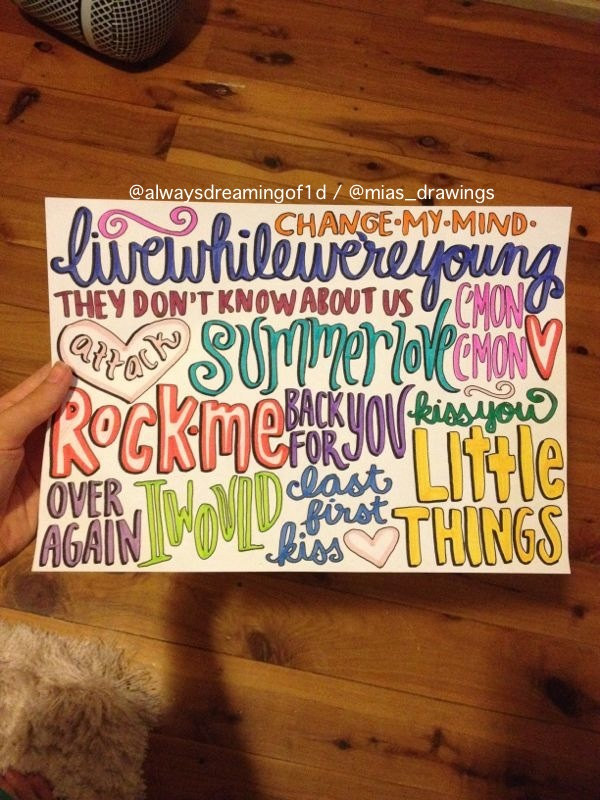 @alwaysdreamingof1d / @mias_drawings
CHANGE·MY·MIND·
livewhilewereyoung
THEY DON'T KNOW ABOUT US
C'MON
C'MON
attack
summerlove
ROCK·me
BACK
FOR YOU
kissyou
LITTLE
THINGS
OVER
AGAIN
I WOULD
last
first
kiss